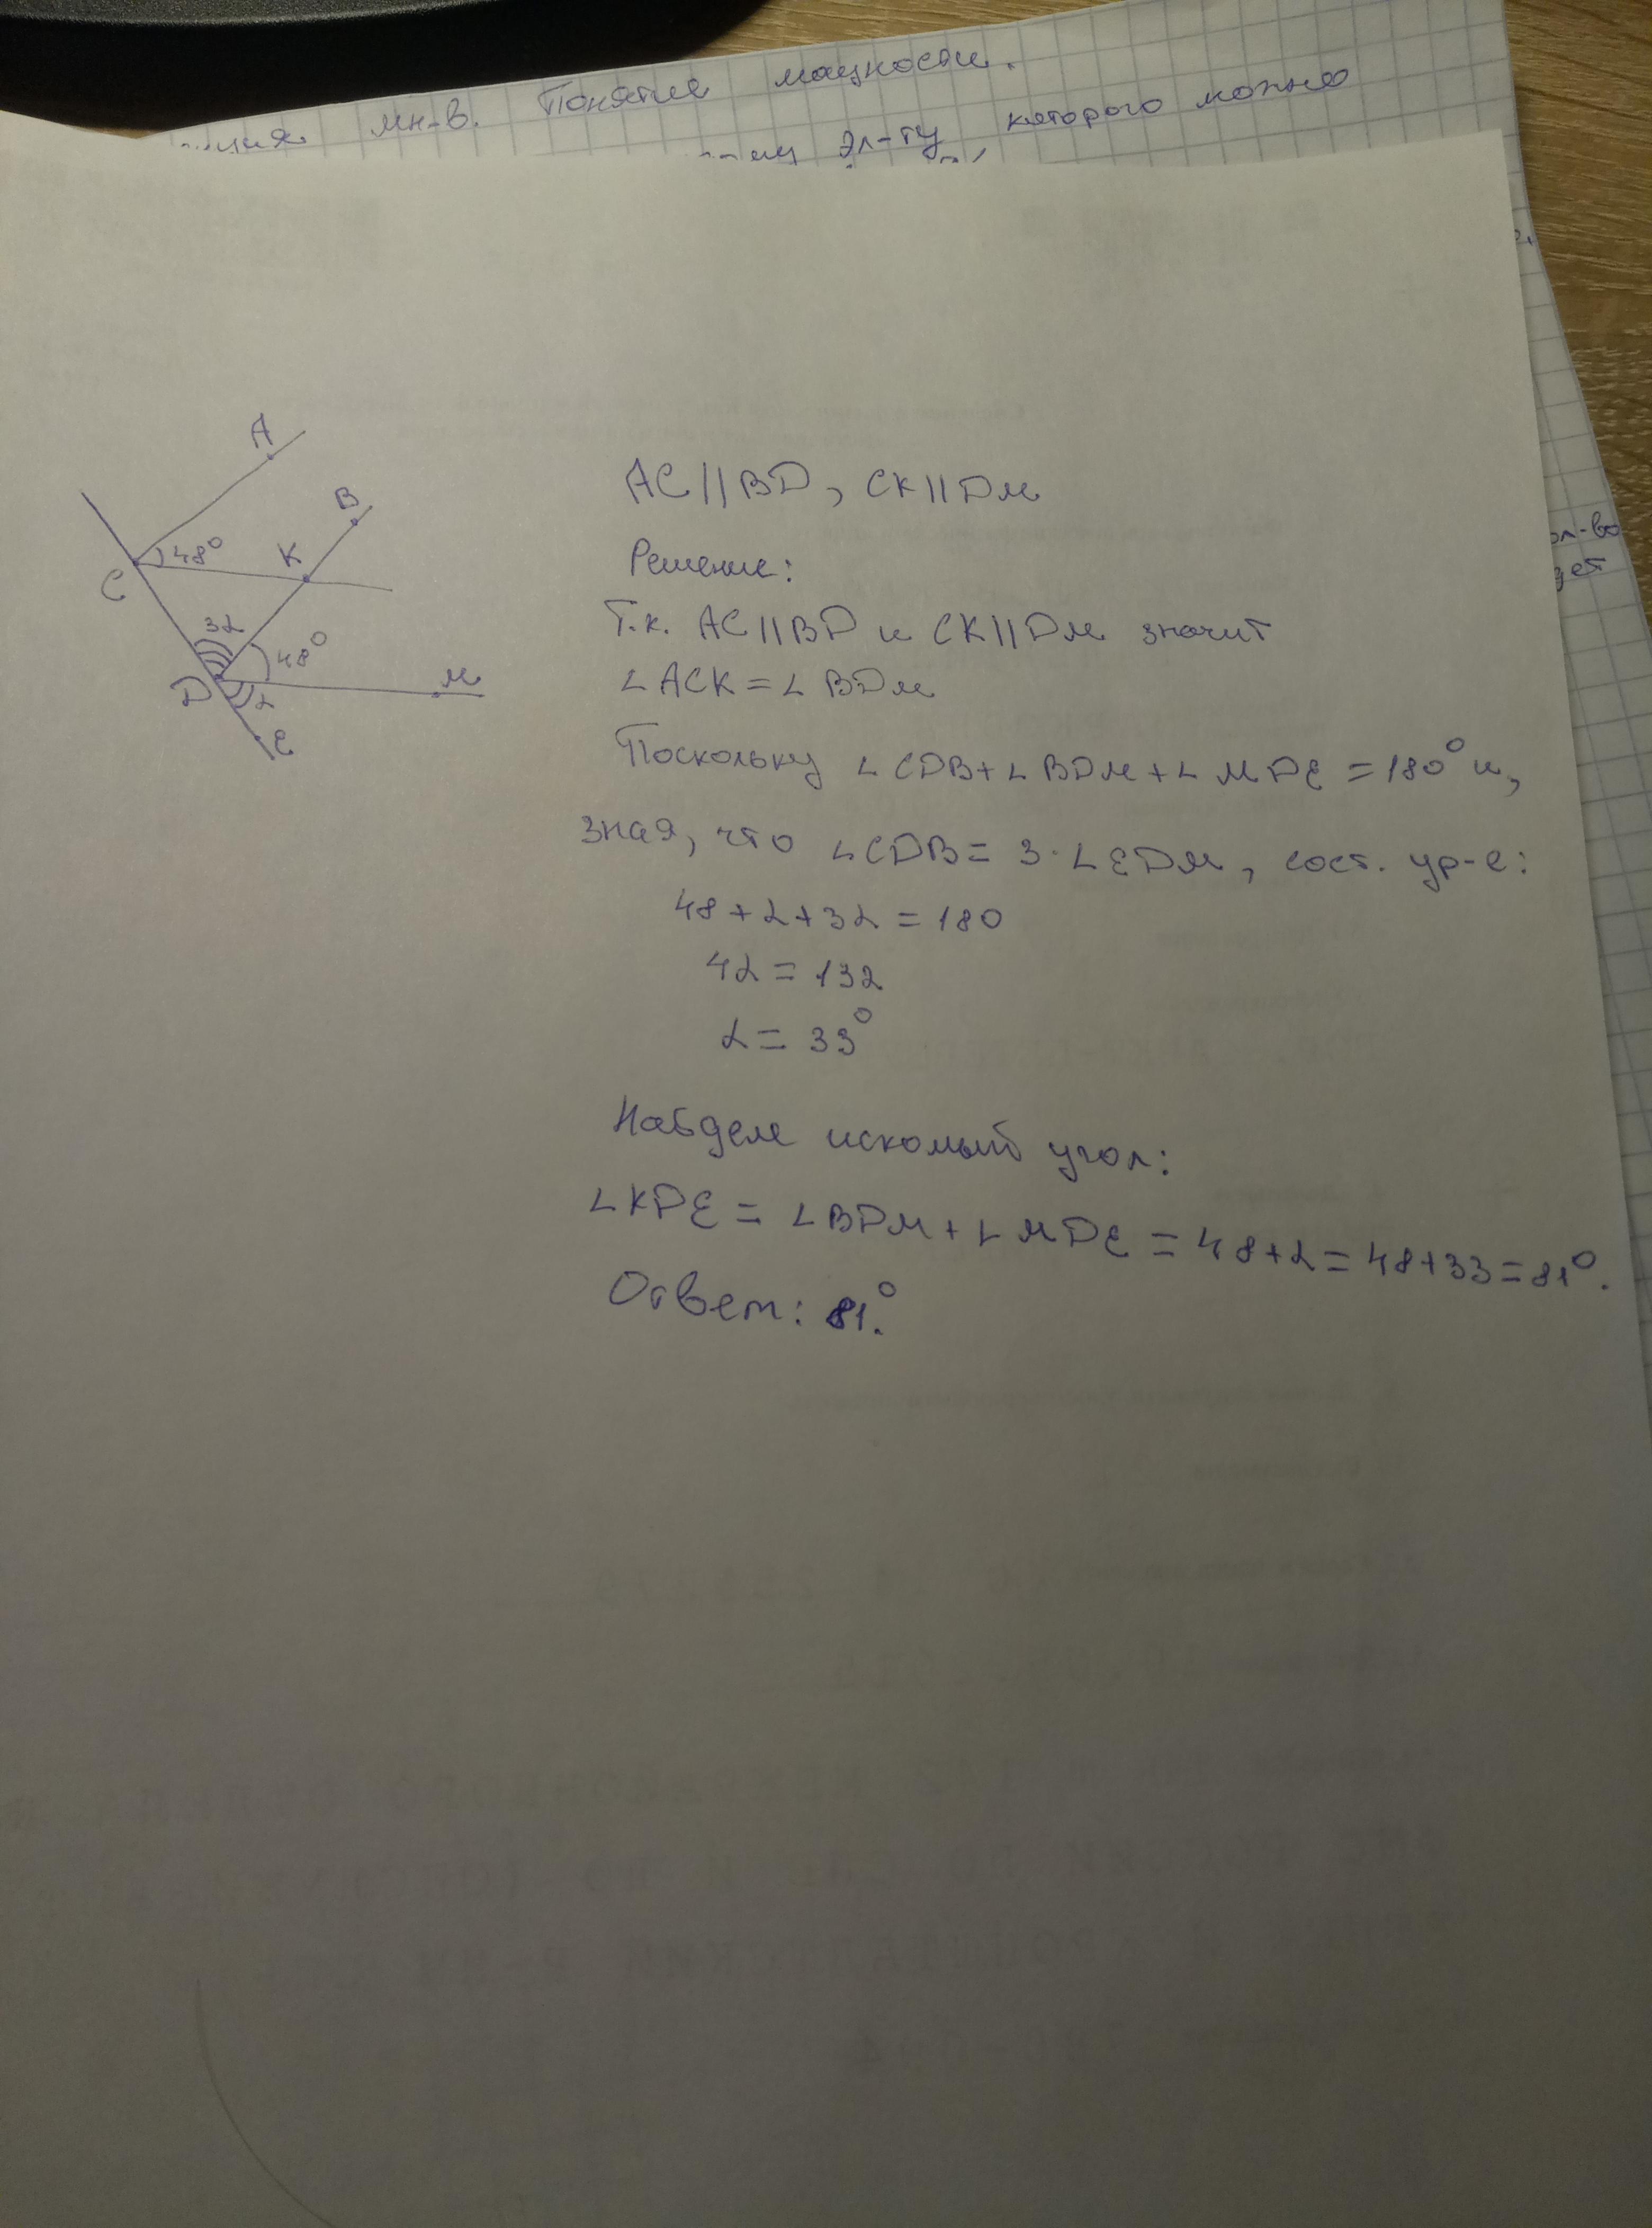 мн-в. Понятие мощности.
эл-ту, которого можно
A
B
48°
K
C
3α
48°
M
D
α
E
AC||BD, CK||DM
Решение:
Т.к. AC||BD и CK||DM значит
∠ACK=∠BDM
Поскольку ∠CDB+∠BDM+∠MDE=180° и,
зная, что ∠CDB=3·∠EDM, сост. ур-е:
48+α+3α=180
4α=132
α=33°
Найдем искомый угол:
∠KDE=∠BDM+∠MDE=48+α=48+33=81°.
Ответ: 81°.